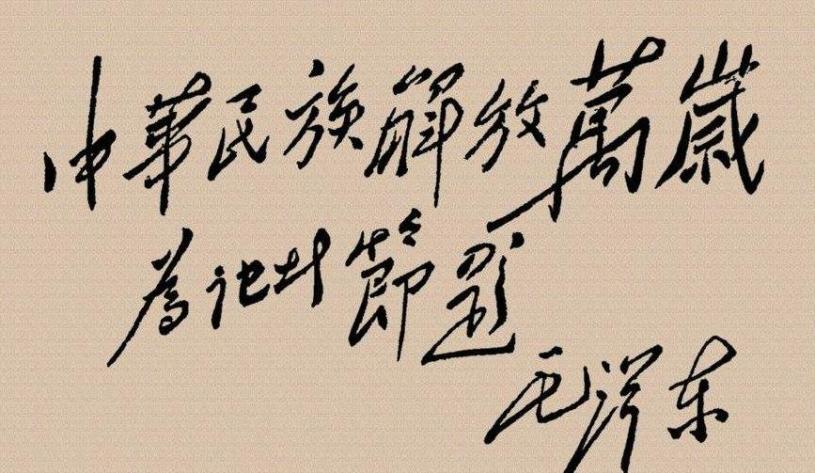 中華民族解放萬歲
為記者節題
毛澤东